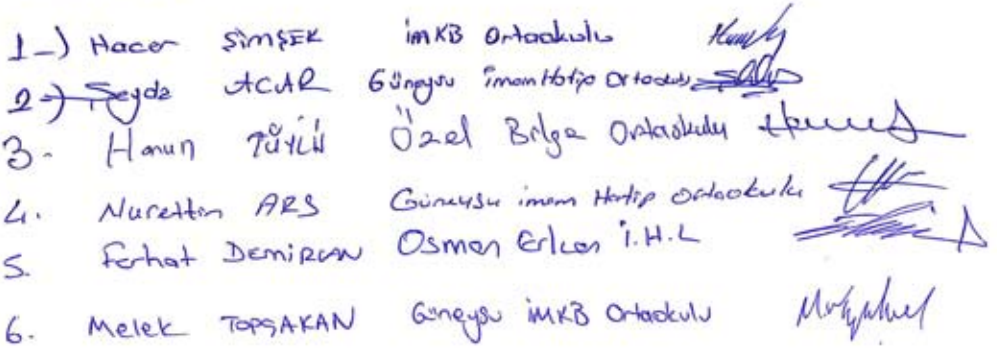 1-) Hacer ŞİMŞEK İMKB Ortaokulu
2-) Şeyda ACAR Güneysu İmam Hatip Ortaokulu
3- Harun Özel Bilge Ortaokulu
4. Nurettin ARS Güneysu imam Hatip ortaokulu
5. Ferhat DEMİRCAN Osman Erkan İ.H.L
6. Melek TOPÇAKAN Güneysu İMKB Ortaokulu